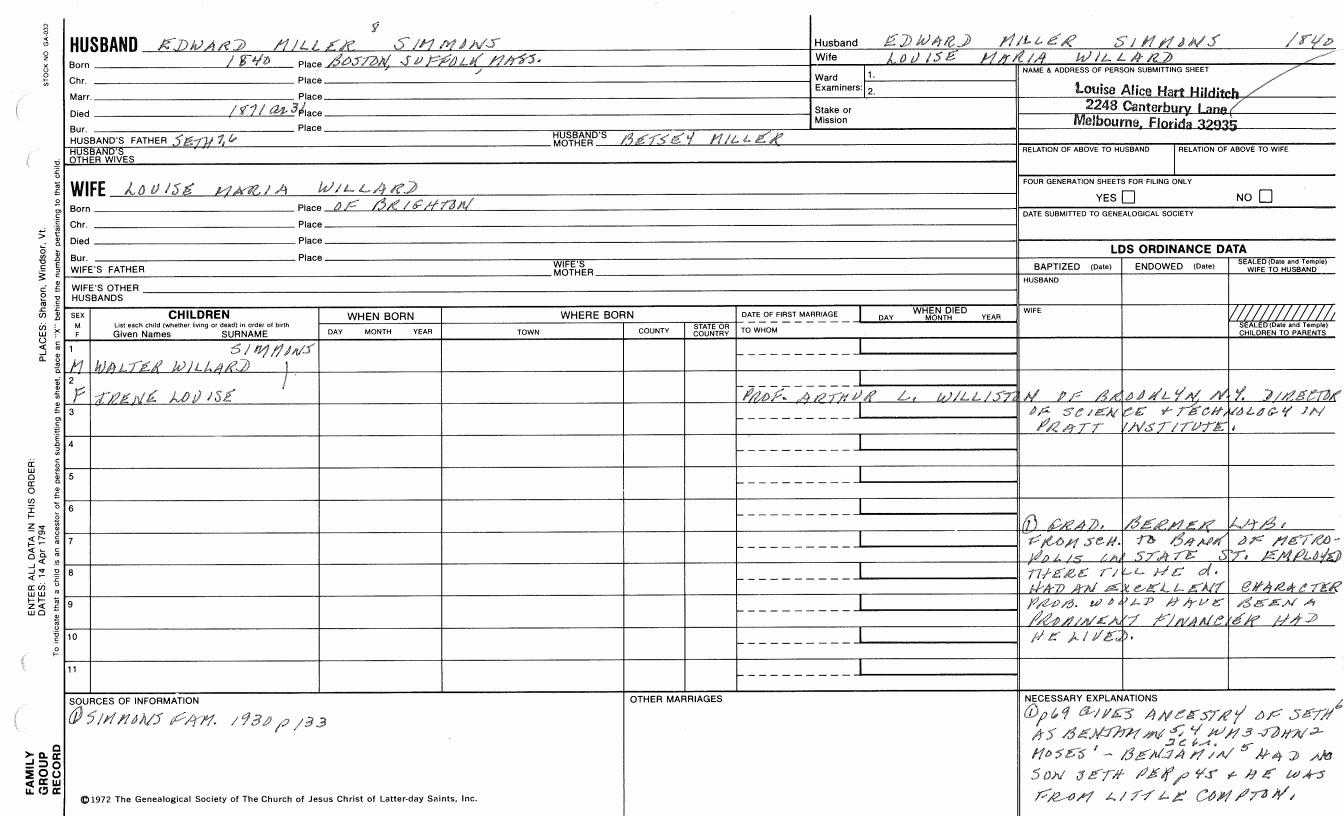 STOCK NO GA-033
8
HUSBAND EDWARD MILLER SIMMONS
Born 1840 Place BOSTON, SUFFOLK, MASS.
Chr. Place
Marr. Place
Died 1871 Place
Bur. Place
HUSBAND'S FATHER SETH 7,6 HUSBAND'S MOTHER BETSEY MILLER
HUSBAND'S OTHER WIVES
WIFE LOUISE MARIA WILLARD
Born Place OF BRIGHTON
Chr. Place
Died Place
Bur. Place
WIFE'S FATHER WIFE'S MOTHER
WIFE'S OTHER HUSBANDS
Husband EDWARD MILLER SIMMONS 1840
Wife LOUISE MARIA WILLARD
Ward Examiners: 1.
2.
Stake or Mission
NAME & ADDRESS OF PERSON SUBMITTING SHEET
Louise Alice Hart Hilditch
2248 Canterbury Lane
Melbourne, Florida 32935
RELATION OF ABOVE TO HUSBAND RELATION OF ABOVE TO WIFE
FOUR GENERATION SHEETS FOR FILING ONLY
YES NO
DATE SUBMITTED TO GENEALOGICAL SOCIETY
LDS ORDINANCE DATA
BAPTIZED (Date) ENDOWED (Date) SEALED (Date and Temple) WIFE TO HUSBAND
HUSBAND
WIFE
SEALED (Date and Temple) CHILDREN TO PARENTS
SEX M F
CHILDREN
List each child (whether living or dead) in order of birth
Given Names SURNAME
WHEN BORN
DAY MONTH YEAR
WHERE BORN
TOWN COUNTY STATE OR COUNTRY
DATE OF FIRST MARRIAGE
TO WHOM
WHEN DIED
DAY MONTH YEAR
1 SIMMONS
M WALTER WILLARD
2
F IRENE LOUISE PROF. ARTHUR L. WILLISTON OF BROOKLYN, N.Y. DIRECTOR
OF SCIENCE + TECHNOLOGY IN
PRATT INSTITUTE.
3
4
5
6
7
8
9
10
11
① GRAD. BERMER LAB.
FROM SCH. TO BANK OF METRO-
POLIS IN STATE ST. EMPLOYED
THERE TILL HE d.
HAD AN EXCELLENT CHARACTER
PROB. WOULD HAVE BEEN A
PROMINENT FINANCIER HAD
HE LIVED.
SOURCES OF INFORMATION
① SIMMONS FAM. 1930 p 133
OTHER MARRIAGES
NECESSARY EXPLANATIONS
① p69 GIVES ANCESTRY OF SETH 6
AS BENJAMIN 5,4 WM3 JOHN 2
MOSES 1 - BENJAMIN 5 HAD NO
SON SETH PER p45 + HE WAS
FROM LITTLE COMPTON.
©1972 The Genealogical Society of The Church of Jesus Christ of Latter-day Saints, Inc.
FAMILY GROUP RECORD
ENTER ALL DATA IN THIS ORDER:
DATES: 14 Apr 1794
PLACES: Sharon, Windsor, Vt.
To indicate that a child is an ancestor of the person submitting the sheet, place an "X" behind the number pertaining to that child.